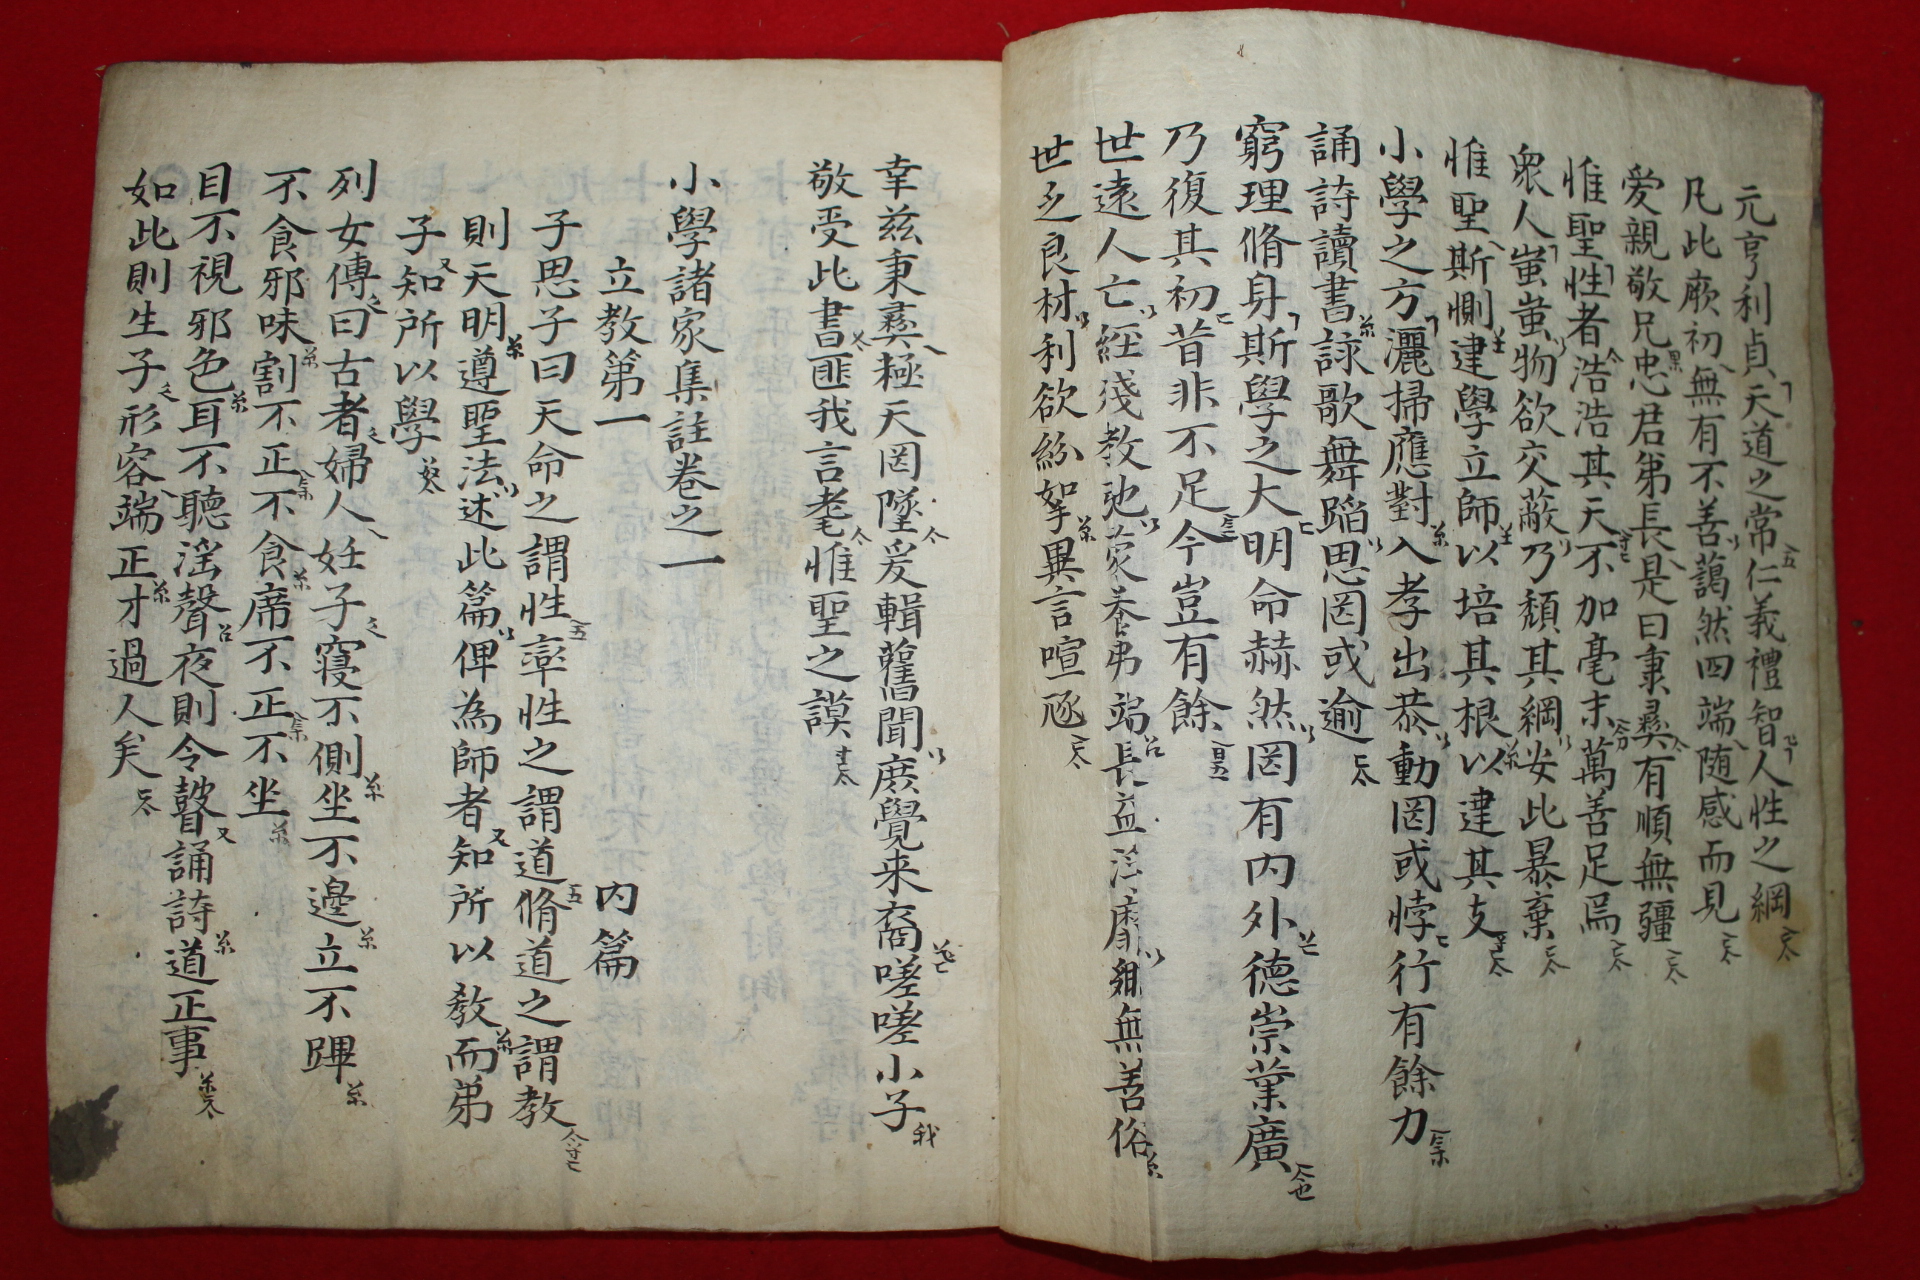 元亨利貞天道之常仁義禮智人性之綱
凡此厥初無有不善藹然四端随感而見
爱親敬兄忠君弟長是曰秉彝有順無疆
惟聖性者浩浩其天不加毫末萬善足焉
衆人蚩蚩物欲交蔽乃頹其綱安此暴棄
惟聖斯惻建學立師以培其根以建其支
小學之方灑掃應對入孝出恭動罔或悖行有餘力
誦詩讀書詠歌舞蹈思罔或逾
窮理脩身斯學之大明命赫然罔有内外德崇業廣
乃復其初昔非不足今豈有餘
世遠人亡経殘教弛蒙養弗端長益浮靡鄉無善俗
世乏良材利欲紛挐異言喧豗
幸兹秉彝極天罔墜爰輯舊聞庶覺来裔嗟嗟小子
敬受此書匪我言耄惟聖之謨
小學諸家集註卷之一
立教第一 内篇
子思子曰天命之謂性率性之謂道脩道之謂教
則天明遵聖法述此篇俾為師者知所以教而弟
子知所以學
列女傳曰古者婦人妊子寢不側坐不邊立不蹕
不食邪味割不正不食席不正不坐
目不視邪色耳不聽淫聲夜則令瞽誦詩道正事
如此則生子形容端正才過人矣